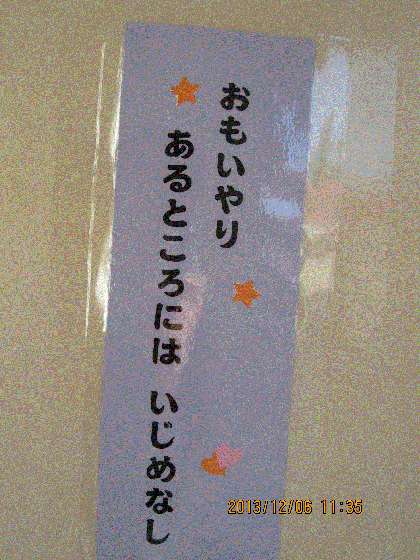 おもいやり
あるところには いじめなし
2013/12/06 11:35